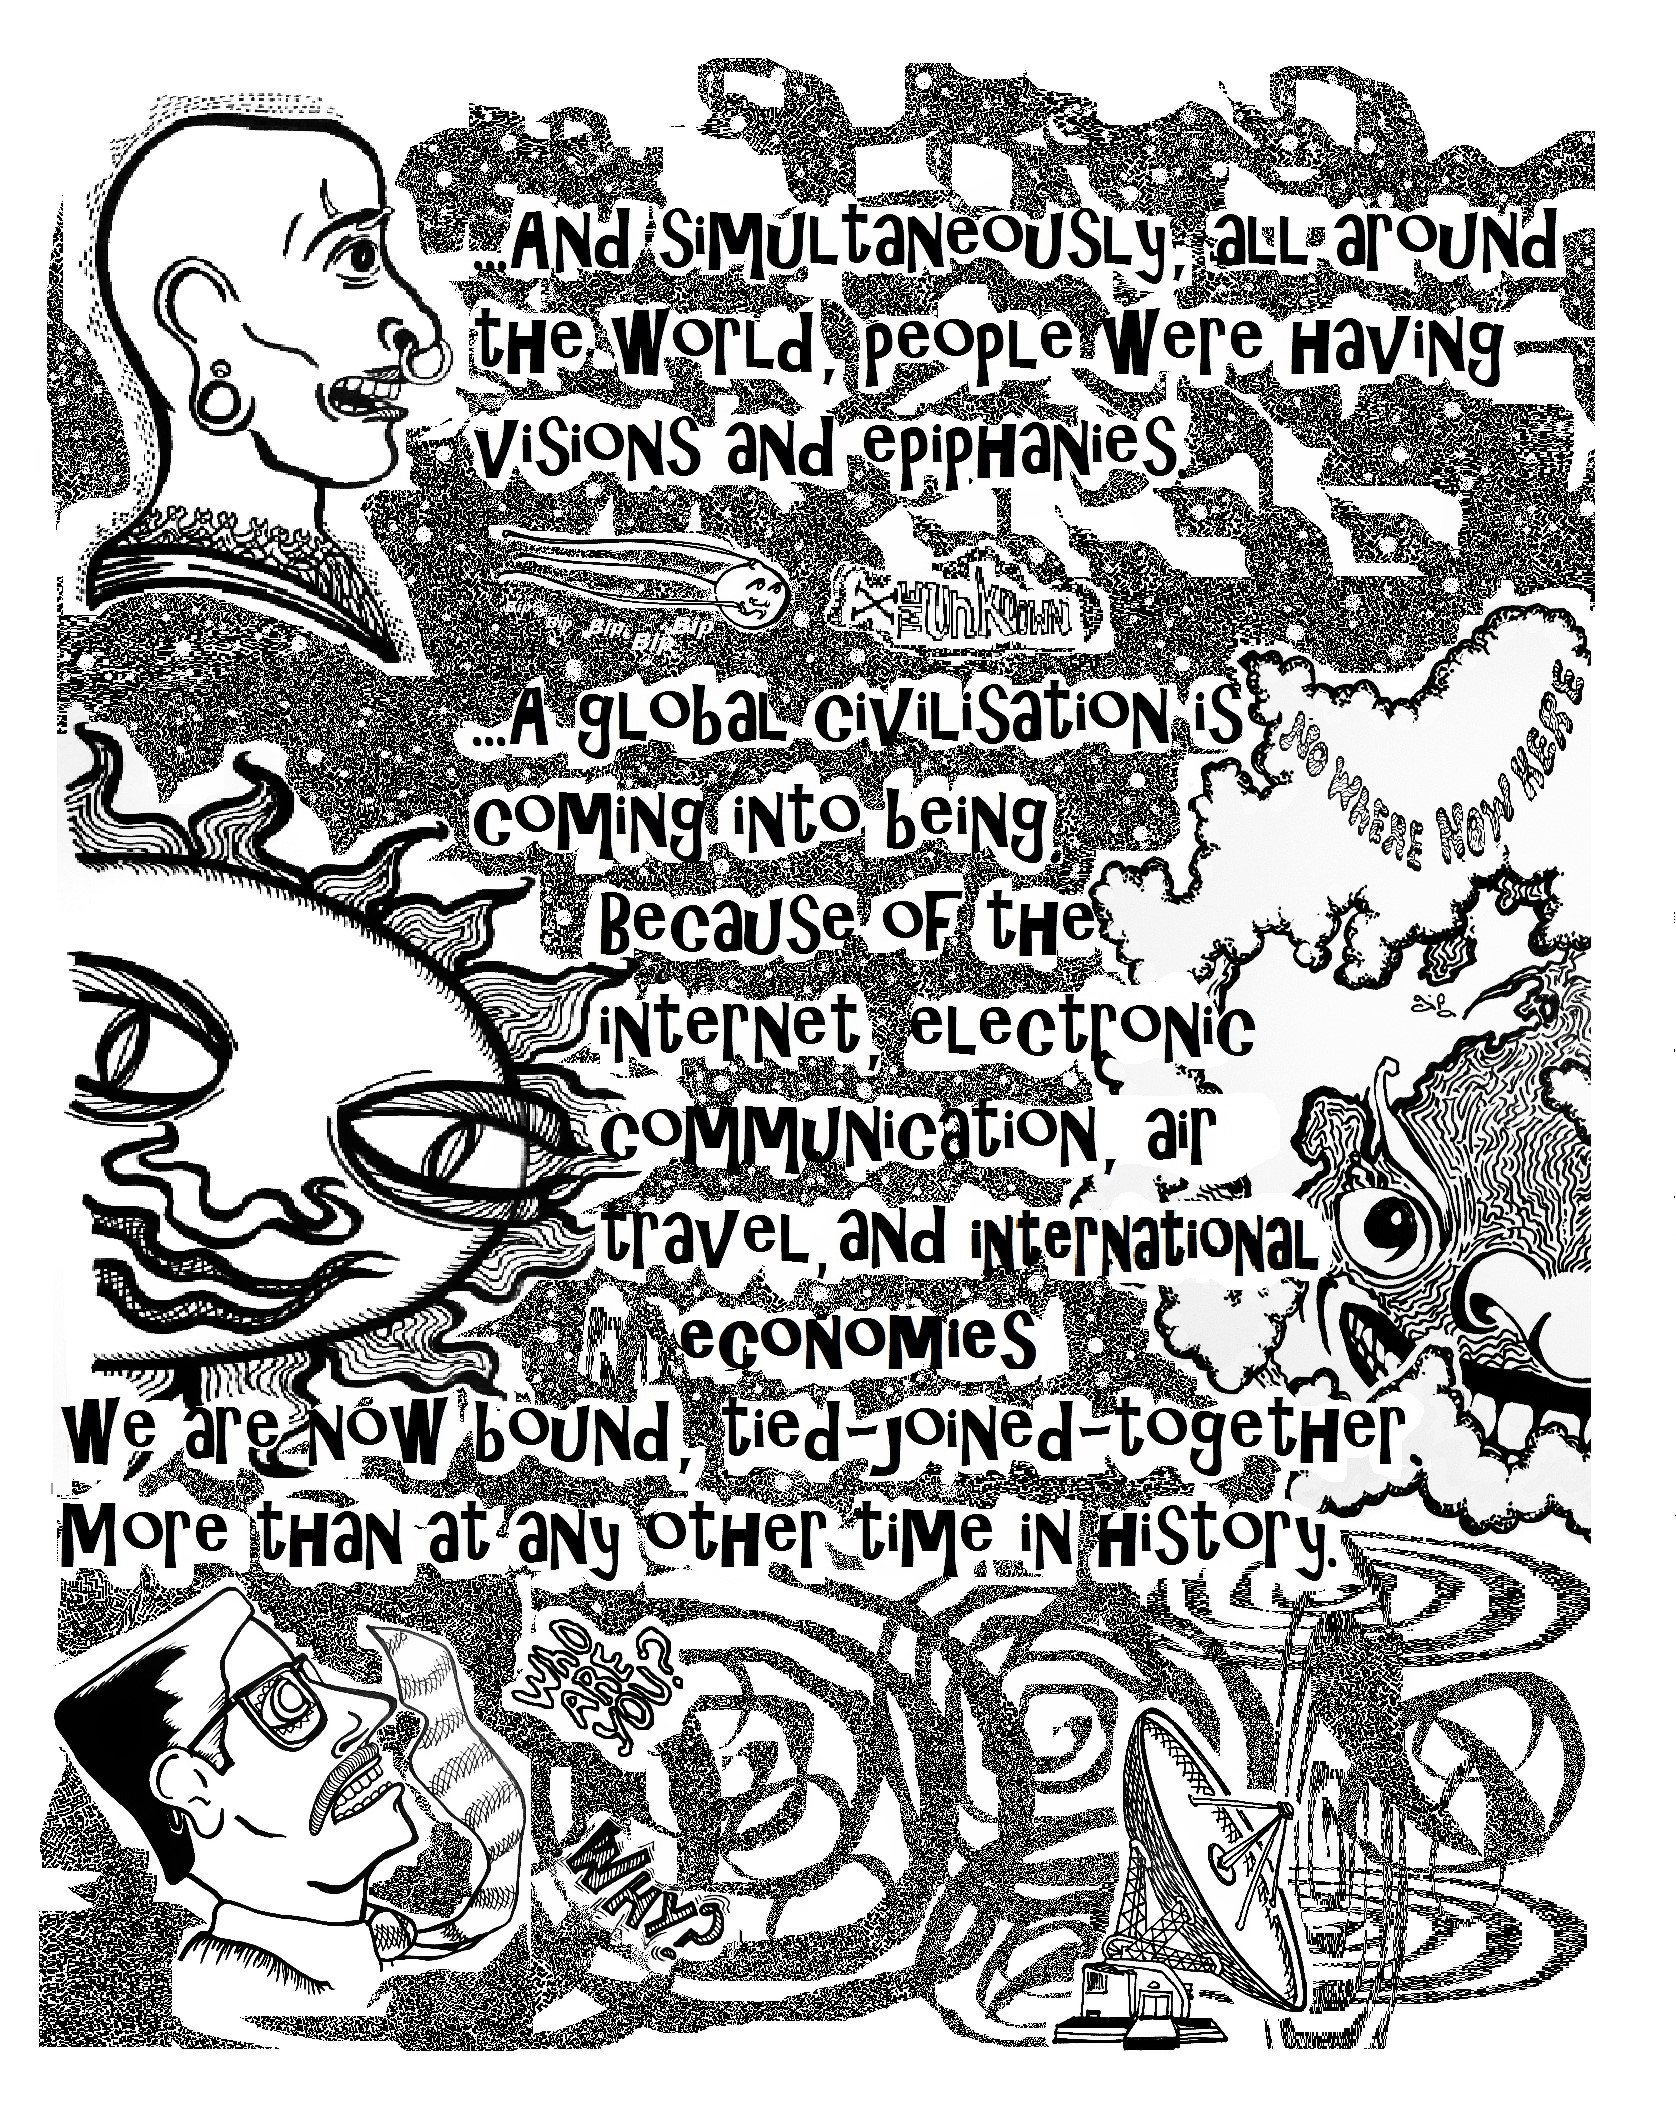 ...And simultaneously, all around
the world, people were having
visions and epiphanies.
Bip Bip Bip Bip Bip
X THE UNKNOWN
...A global civilisation is
coming into being.
NO WHERE NOW HERE
Because of the
internet, electronic
communication, air
travel, and international
economies
We are now bound, tied-joined-together.
More than at any other time in history.
WHO
ARE
YOU?
WHY?